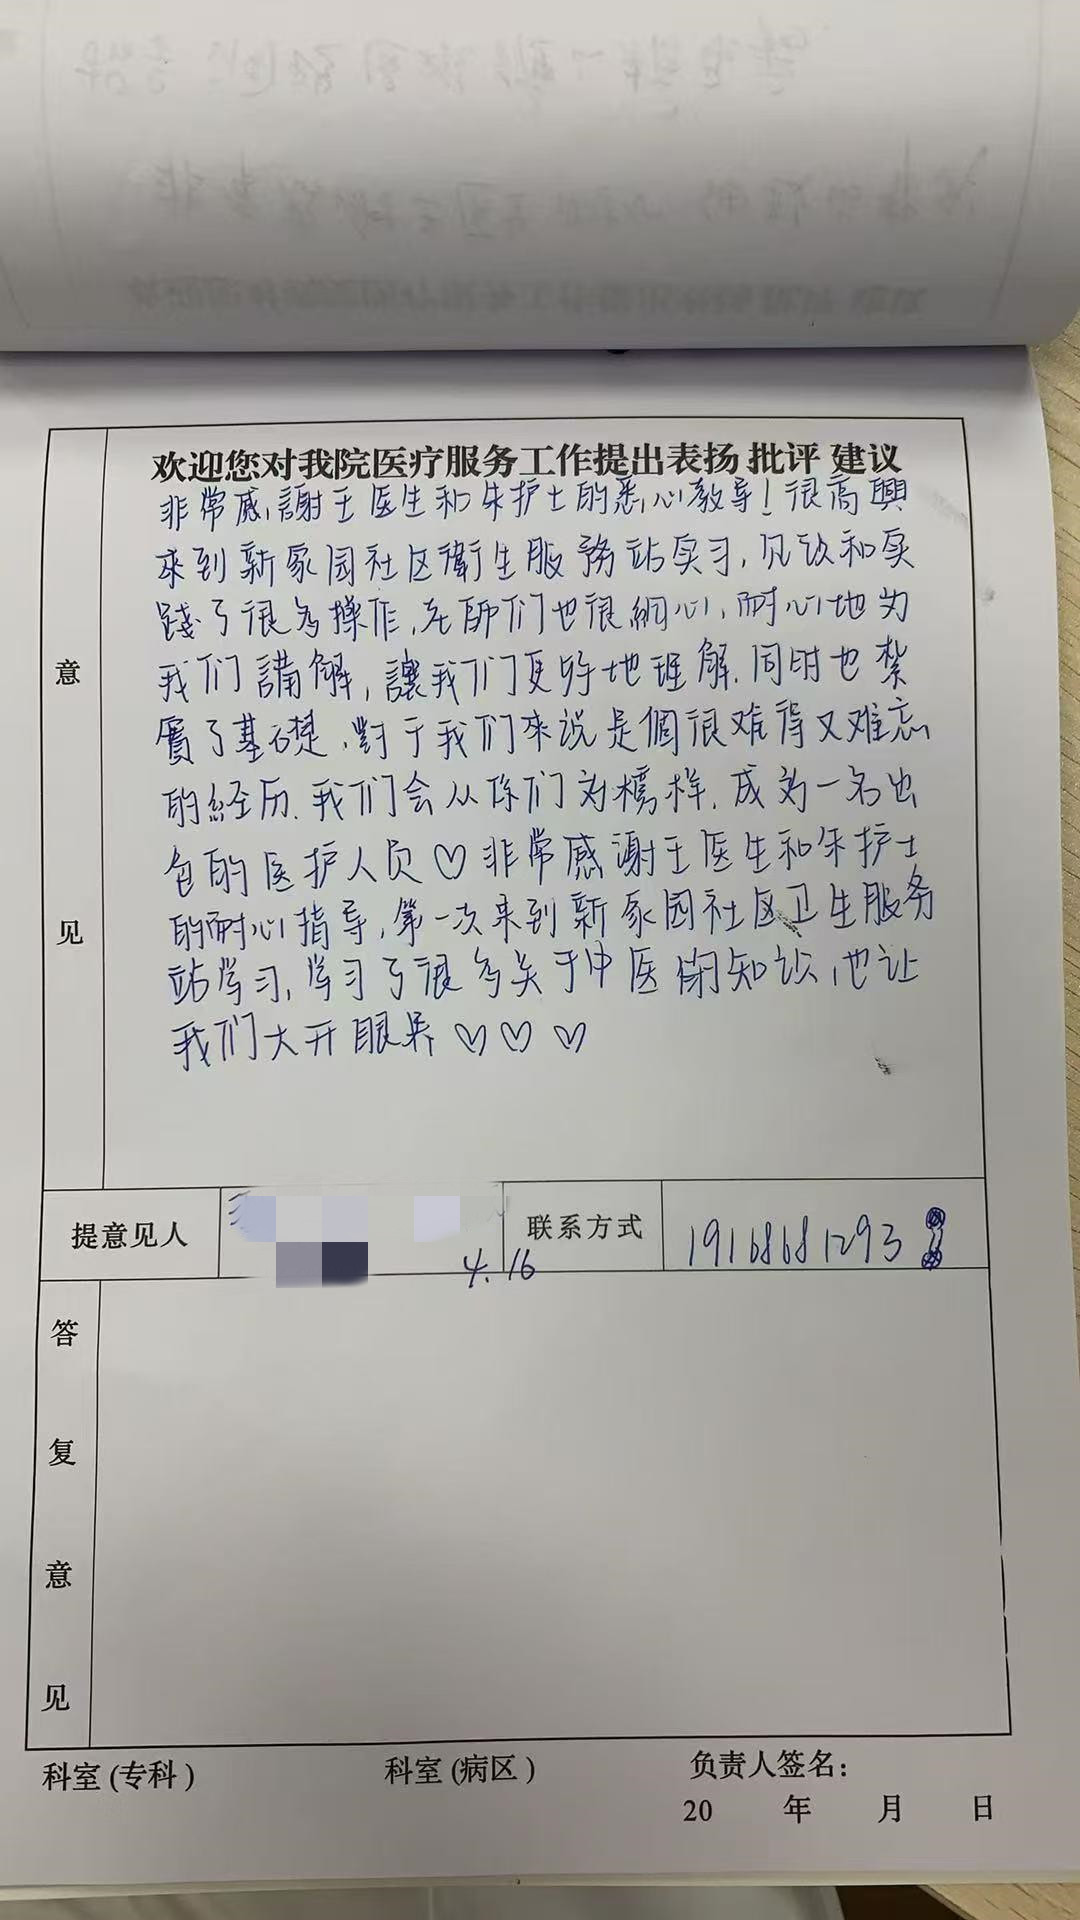 欢迎您对我院医疗服务工作提出表扬 批评 建议
非常感謝王医生和朱护士的悉心教导！很高興
來到新家园社区衛生服務站实习，见识和实
踐了很多操作，老师们也很細心，耐心地为
我们講解，讓我们更好地理解.同时也紮
實了基礎，對于我们來说是個很难得又难忘
的経历.我们会以你们为榜样，成为一名出
色的医护人员♡非常感谢王医生和朱护士
的耐心指导，第一次来到新家园社区卫生服务
站学习，学习了很多关于中医的知识，也让
我们大开眼界♡♡♡
意
见
提意见人
4.16
联系方式
19168681293
答
复
意
见
科室(专科)
科室(病区)
负责人签名:
20 年 月 日